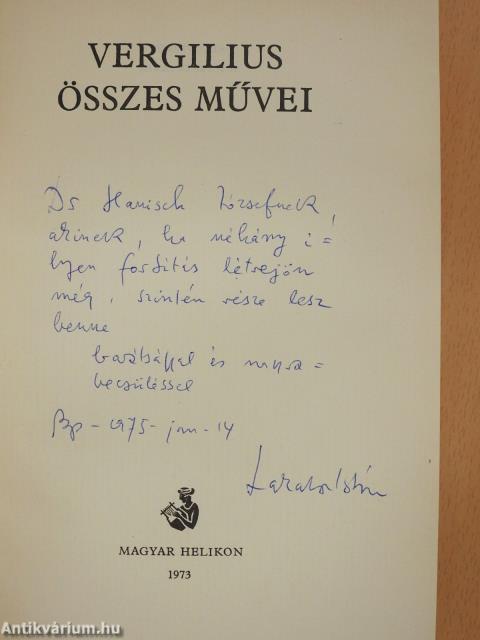 VERGILIUS
ÖSSZES MŰVEI
Dr Hanisch Józsefnek,
akinek, ha néhány i=
lyen fordítás létrejön
még, szintén része lesz
benne
barátsággal és nagyra=
becsüléssel
Bp - 1975 - jan - 14
Lakatos István
MAGYAR HELIKON
1973
Antikvárium.hu